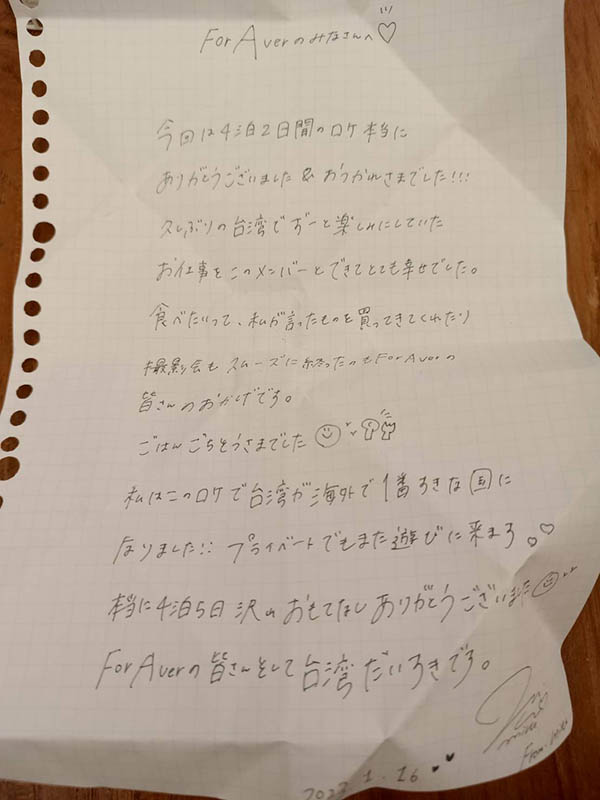 For Averのみなさんへ♡
今回は4泊2日間のロケ本当に
ありがとうございました & おつかれさまでした!!!
久しぶりの台湾でずーと楽しみにしていた
お仕事をこのメンバーとできてとても幸せでした。
食べたいって、私が言ったものを買ってきてくれたり
撮影会もスムーズに終ったのもFor Averの
皆さんのおかげです。
ごはんごちそうさまでした
私はこのロケで台湾が海外で1番すきな国に
なりました!! プライベートでもまた遊びに来まる♡♡
本当に4泊5日 沢山おもてなしありがとうございました
For Averの皆さんそして台湾だいすきです。
From
2023 1.16